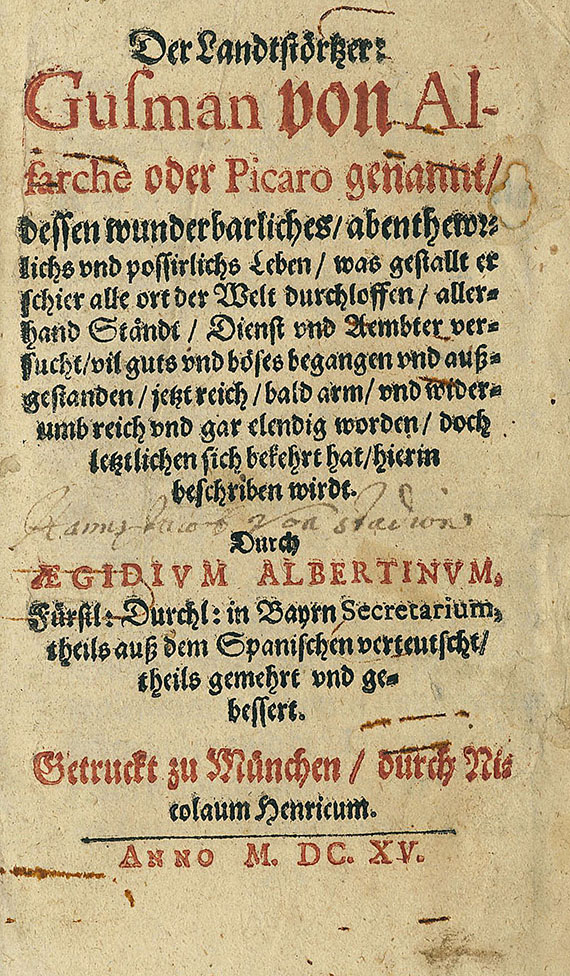 Der Landtstörtzer:
Gusman von Al-
farche oder Picaro genannt/
dessen wunderbarliches/ abenthewr-
lichs vnd possirlichs Leben/ was gestallt er
schier alle ort der Welt durchloffen/ aller-
hand Ständt/ Dienst vnd Aembter ver-
sucht/ vil guts vnd böses begangen vnd auß-
gestanden/ jetzt reich/ bald arm/ vnd wider-
umb reich vnd gar elendig worden/ doch
letztlichen sich bekehrt hat/ hierin
beschriben wirdt.
Hannß Jacob Von stadion
Durch
ÆGIDIVM ALBERTINVM,
Fürstl: Durchl: in Bayrn Secretarium,
theils auß dem Spanischen verteutscht/
theils gemehrt vnd ge-
bessert.
Getruckt zu München/ durch Ni-
colaum Henricum.
ANNO M. DC. XV.